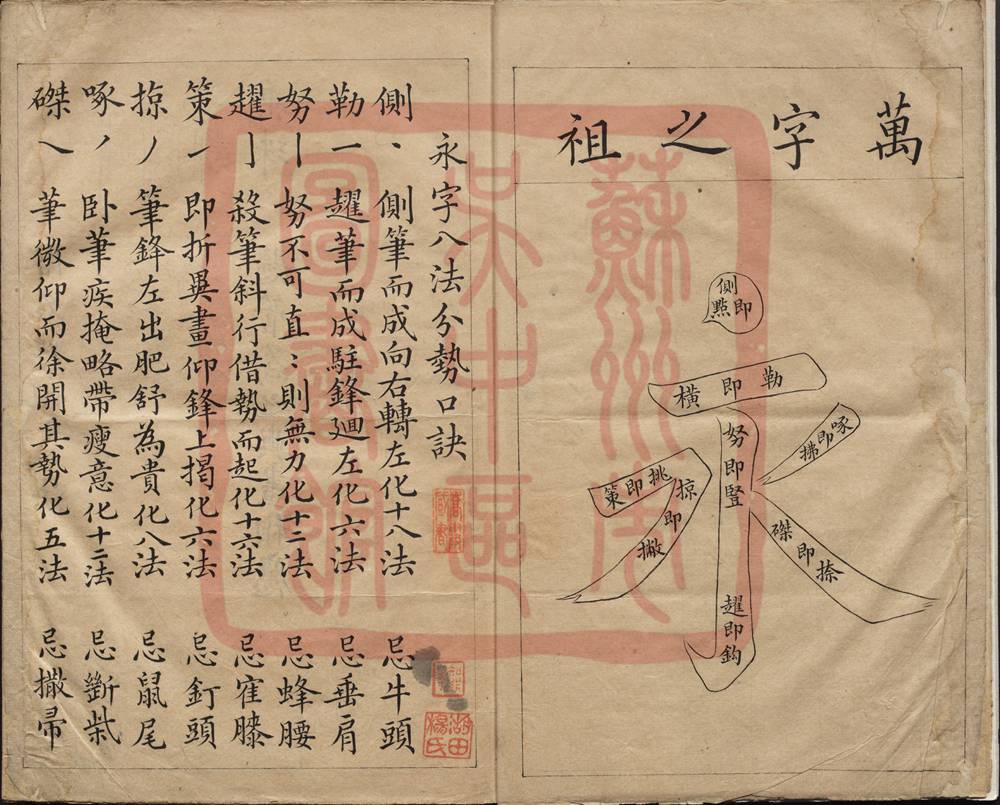 萬字之祖
側即點
勒即橫
努即豎
趯即鈎
挑即策
掠即撇
啄即拂
磔即捺
永字八法分勢口訣
側丶 側筆而成向右轉左化十八法 忌牛頭
勒一 趯筆而成駐鋒廻左化六法 忌垂肩
努丨 努不可直〻則無力化十二法 忌蜂腰
趯亅 殺筆斜行借勢而起化十六法 忌寉膝
策㇀ 即折異畫仰鋒上揭化六法 忌釘頭
掠丿 筆鋒左出肥舒為貴化八法 忌鼠尾
啄丿 卧筆疾掩略帶瘦意化十二法 忌斷柴
磔乀 筆微仰而徐開其勢化五法 忌撒帚
蘇州市
吳中區
圖書館
湖田
楊氏